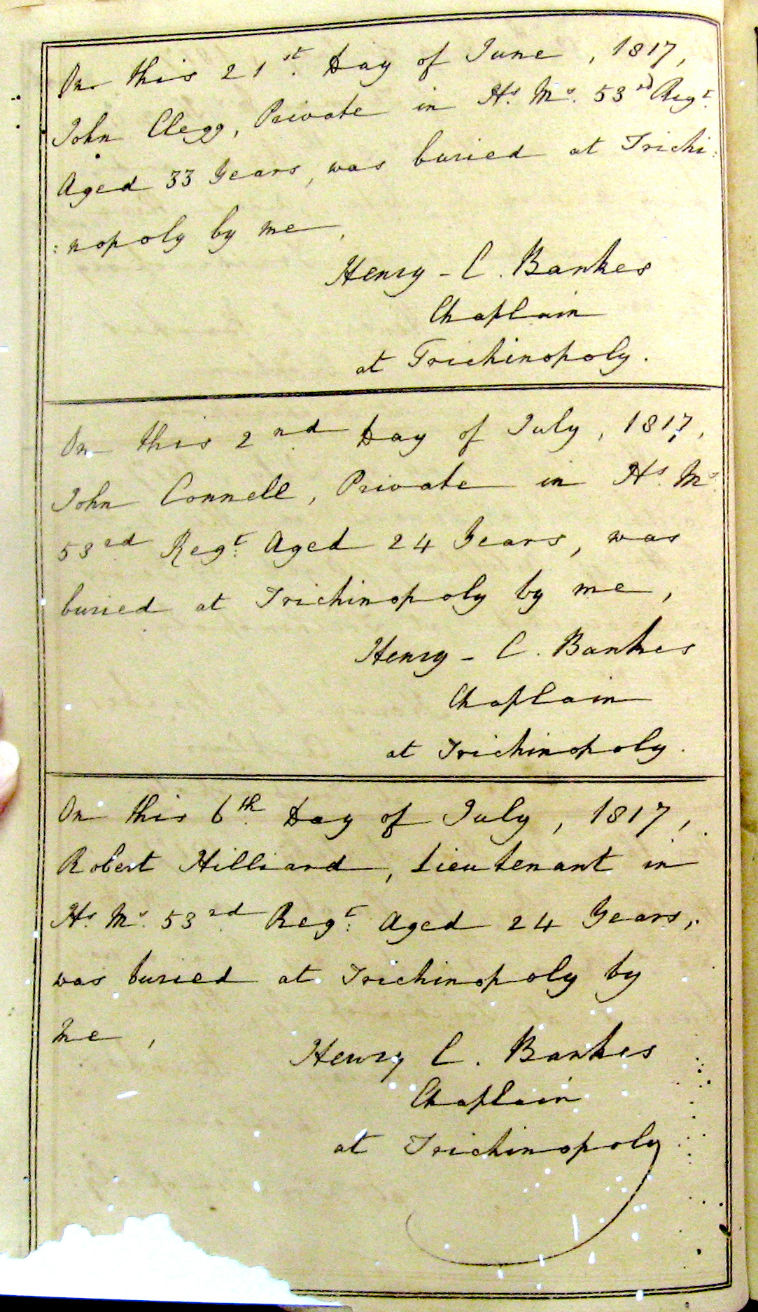 On this 21st. Day of June, 1817,
John Clegg, Private in Hs. Ms. 53rd Regt.
Aged 33 Years, was buried at Trichi:
:nopoly by me,
Henry - C. Bankes
Chaplain
at Trichinopoly.
On this 2nd Day of July, 1817,
John Connell, Private in Hs. Ms.
53rd Regt. Aged 24 Years, was
buried at Trichinopoly by me,
Henry - C. Bankes
Chaplain
at Trichinopoly.
On this 6th. Day of July, 1817,
Robert Hilliard, Lieutenant in
Hs. Ms. 53rd Regt. Aged 24 Years,
was buried at Trichinopoly by
me,
Henry C. Bankes
Chaplain
at Trichinopoly